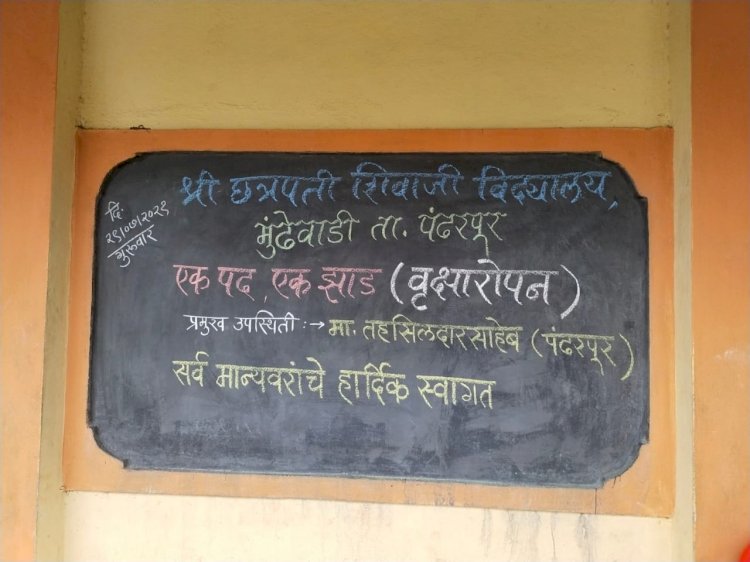 श्री छत्रपती शिवाजी विद्यालय,
मुंढेवाडी ता. पंढरपूर
दि.
२९/०७/२०२१
गुरूवार
एक पद, एक झाड (वृक्षारोपन)
प्रमुख उपस्थिती :→ मा. तहसिलदारसाहेब (पंढरपूर)
सर्व मान्यवरांचे हार्दिक स्वागत